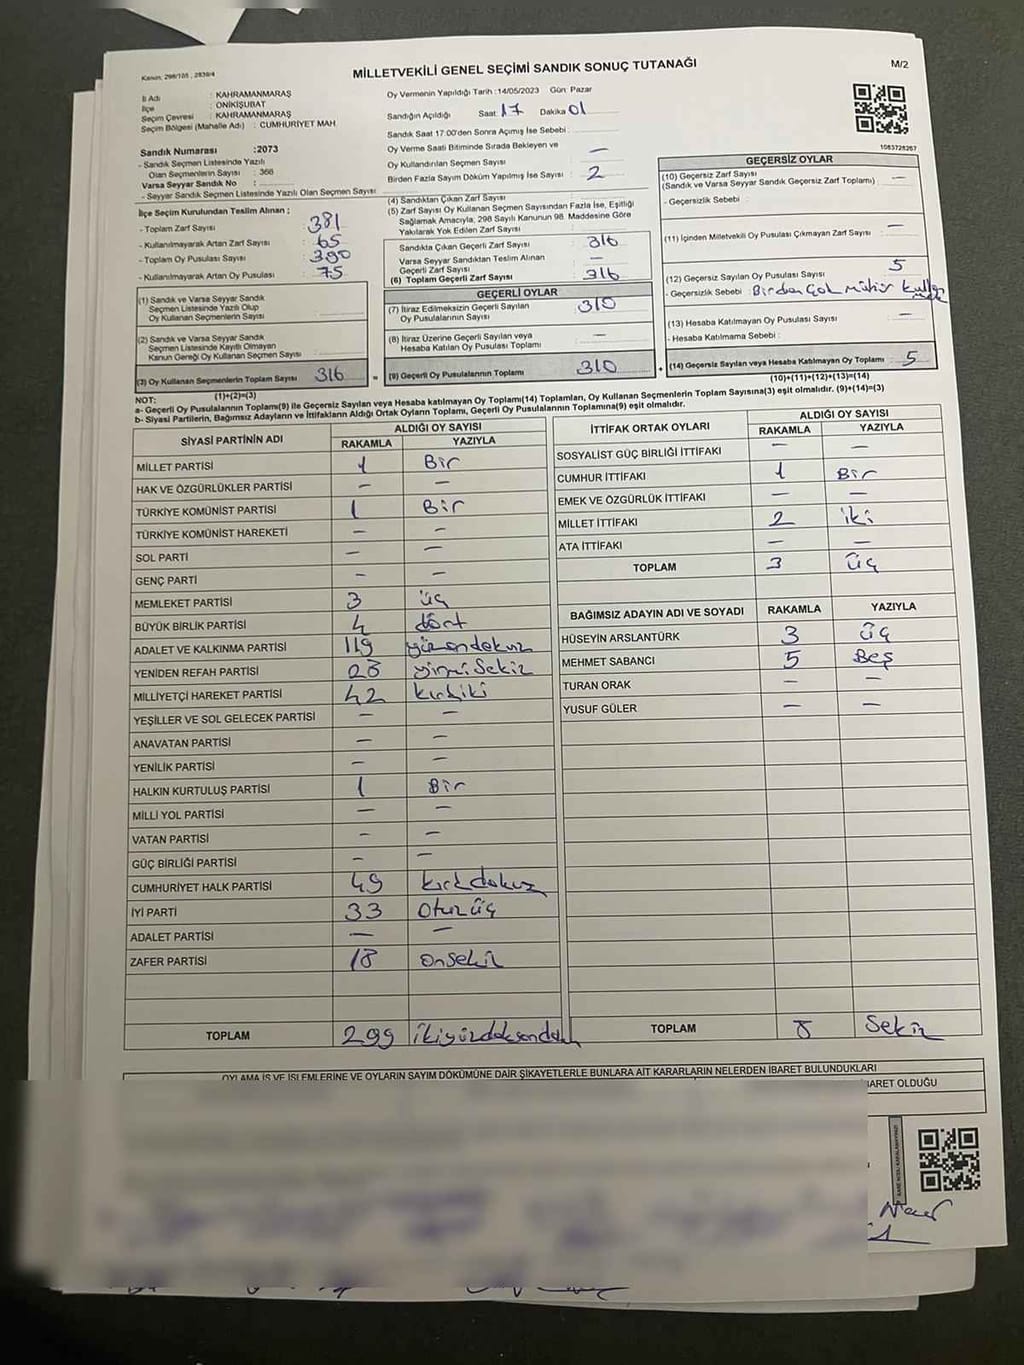 Kanun, 298/105 , 2839/4
MİLLETVEKİLİ GENEL SEÇİMİ SANDIK SONUÇ TUTANAĞI
M/2
İl Adı : KAHRAMANMARAŞ
İlçe : ONİKİŞUBAT
Seçim Çevresi : KAHRAMANMARAŞ
Seçim Bölgesi (Mahalle Adı) : CUMHURİYET MAH
Sandık Numarası :2073
- Sandık Seçmen Listesinde Yazılı
Olan Seçmenlerin Sayısı : 368
Varsa Seyyar Sandık No :
- Seyyar Sandık Seçmen Listesinde Yazılı Olan Seçmen Sayısı
Oy Vermenin Yapıldığı Tarih :14/05/2023 Gün: Pazar
Sandığın Açıldığı Saat 17 Dakika 01
Sandık Saat 17:00'den Sonra Açımış İse Sebebi :
Oy Verme Saati Bitiminde Sırada Bekleyen ve
Oy Kullandırılan Seçmen Sayısı —
Birden Fazla Sayım Döküm Yapılmış İse Sayısı 2
1083728267
İlçe Seçim Kurulundan Teslim Alınan ;
- Toplam Zarf Sayısı : 381
- Kullanılmayarak Artan Zarf Sayısı : 65
- Toplam Oy Pusulası Sayısı : 390
- Kullanılmayarak Artan Oy Pusulası : 75
(1) Sandık ve Varsa Seyyar Sandık
Seçmen Listesinde Yazılı Olup
Oy Kullanan Seçmenlerin Sayısı
(2) Sandık ve Varsa Seyyar Sandık
Seçmen Listesinde Kayıtlı Olmayan
Kanun Gereği Oy Kullanan Seçmen Sayısı
(3) Oy Kullanan Seçmenlerin Toplam Sayısı 316
(1)+(2)=(3)
(4) Sandıktan Çıkan Zarf Sayısı
(5) Zarf Sayısı Oy Kullanan Seçmen Sayısından Fazla İse, Eşitliği
Sağlamak Amacıyla, 298 Sayılı Kanunun 98. Maddesine Göre
Yakılarak Yok Edilen Zarf Sayısı
Sandıkta Çıkan Geçerli Zarf Sayısı : 316
Varsa Seyyar Sandıktan Teslim Alınan
Geçerli Zarf Sayısı : —
(6) Toplam Geçerli Zarf Sayısı : 316
GEÇERLİ OYLAR
(7) İtiraz Edilmeksizin Geçerli Sayılan
Oy Pusulalarının Sayısı 310
(8) İtiraz Üzerine Geçerli Sayılan veya
Hesaba Katılan Oy Pusulası Toplamı —
= (9) Geçerli Oy Pusulalarının Toplamı 310
GEÇERSİZ OYLAR
(10) Geçersiz Zarf Sayısı
(Sandık ve Varsa Seyyar Sandık Geçersiz Zarf Toplamı) : —
- Geçersizlik Sebebi :
(11) İçinden Milletvekili Oy Pusulası Çıkmayan Zarf Sayısı : —
(12) Geçersiz Sayılan Oy Pusulası Sayısı : 5
- Geçersizlik Sebebi : Birden çok mühür
(13) Hesaba Katılmayan Oy Pusulası Sayısı : —
- Hesaba Katılmama Sebebi :
+ (14) Geçersiz Sayılan veya Hesaba Katılmayan Oy Toplamı 5
(10)+(11)+(12)+(13)=(14)
NOT:
a- Geçerli Oy Pusulalarının Toplamı(9) ile Geçersiz Sayılan veya Hesaba katılmayan Oy Toplamı(14) Toplamları, Oy Kullanan Seçmenlerin Toplam Sayısına(3) eşit olmalıdır. (9)+(14)=(3)
b- Siyasi Partilerin, Bağımsız Adayların ve İttifakların Aldığı Ortak Oyların Toplamı, Geçerli Oy Pusulalarının Toplamına(9) eşit olmalıdır.
SİYASİ PARTİNİN ADI ALDIĞI OY SAYISI
RAKAMLA YAZIYLA
MİLLET PARTİSİ 1 Bir
HAK VE ÖZGÜRLÜKLER PARTİSİ — —
TÜRKİYE KOMÜNİST PARTİSİ 1 Bir
TÜRKİYE KOMÜNİST HAREKETİ — —
SOL PARTİ — —
GENÇ PARTİ — —
MEMLEKET PARTİSİ 3 üç
BÜYÜK BİRLİK PARTİSİ 4 dört
ADALET VE KALKINMA PARTİSİ 119 yüzondokuz
YENİDEN REFAH PARTİSİ 28 yirmi sekiz
MİLLİYETÇİ HAREKET PARTİSİ 42 kırkiki
YEŞİLLER VE SOL GELECEK PARTİSİ — —
ANAVATAN PARTİSİ — —
YENİLİK PARTİSİ — —
HALKIN KURTULUŞ PARTİSİ 1 Bir
MİLLİ YOL PARTİSİ — —
VATAN PARTİSİ — —
GÜÇ BİRLİĞİ PARTİSİ — —
CUMHURİYET HALK PARTİSİ 49 kırkdokuz
İYİ PARTİ 33 otuzüç
ADALET PARTİSİ — —
ZAFER PARTİSİ 18 onsekiz
TOPLAM 299
İTTİFAK ORTAK OYLARI ALDIĞI OY SAYISI
RAKAMLA YAZIYLA
SOSYALİST GÜÇ BİRLİĞİ İTTİFAKI — —
CUMHUR İTTİFAKI 1 Bir
EMEK VE ÖZGÜRLÜK İTTİFAKI — —
MİLLET İTTİFAKI 2 iki
ATA İTTİFAKI — —
TOPLAM 3 üç
BAĞIMSIZ ADAYIN ADI VE SOYADI RAKAMLA YAZIYLA
HÜSEYİN ARSLANTÜRK 3 üç
MEHMET SABANCI 5 Beş
TURAN ORAK — —
YUSUF GÜLER — —
TOPLAM 8 Sekiz
OYLAMA İŞ VE İŞLEMLERİNE VE OYLARIN SAYIM DÖKÜMÜNE DAİR ŞİKAYETLERLE BUNLARA AİT KARARLARIN NELERDEN İBARET BULUNDUKLARI
BARET OLDUĞU